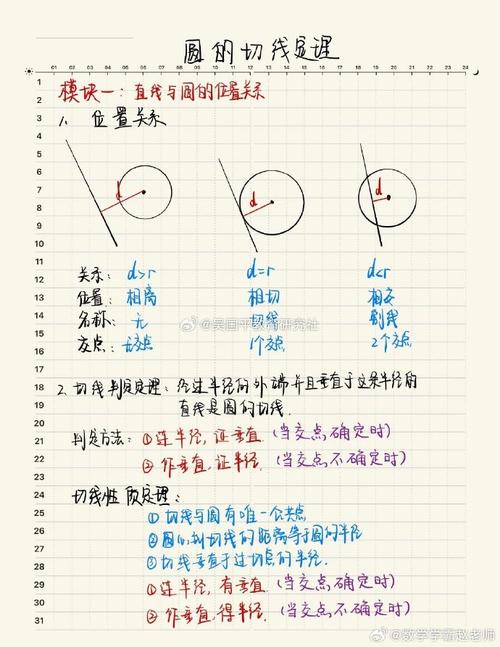 圆的切线定理
01 02 03 04 05 06 07 08 09 10 11 12 13 14 15 16 17 18 19 20 21 22 23 24
1
2 模块一：直线与圆的位置关系
3 1. 位置关系
4
5
6
7 d d d
8
9
10
11
12 关系： d>r d=r d<r
13 位置： 相离 相切 相交
14 名称： 无 切线 割线
15
16 交点： 无交点 1个交点 2个交点
17
18 2. 切线判定定理：经过半径的外端并且垂直于这条半径的
19 直线是圆的切线.
20
21 判定方法：①连半径，证垂直.（当交点确定时）
22 ②作垂直，证半径.（当交点不确定时）
23
24 切线性质定理：
25 ①切线与圆有唯一公共点
26 ②圆心到切线的距离等于圆的半径
27
28 ③切线垂直于过切点的半径.
29 ①连半径，有垂直.（当交点确定时）
30
31 ②作垂直，得半径.（当交点不确定时）
@吴国平教育研究社
@数学学霸赵老师